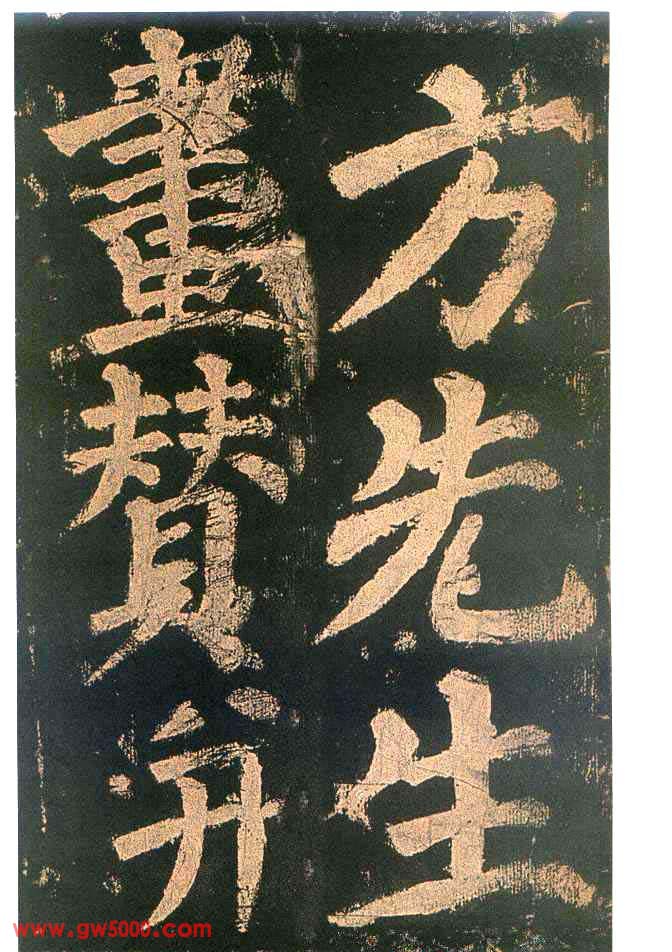 方先生
畫賛并
www.gw5000.com